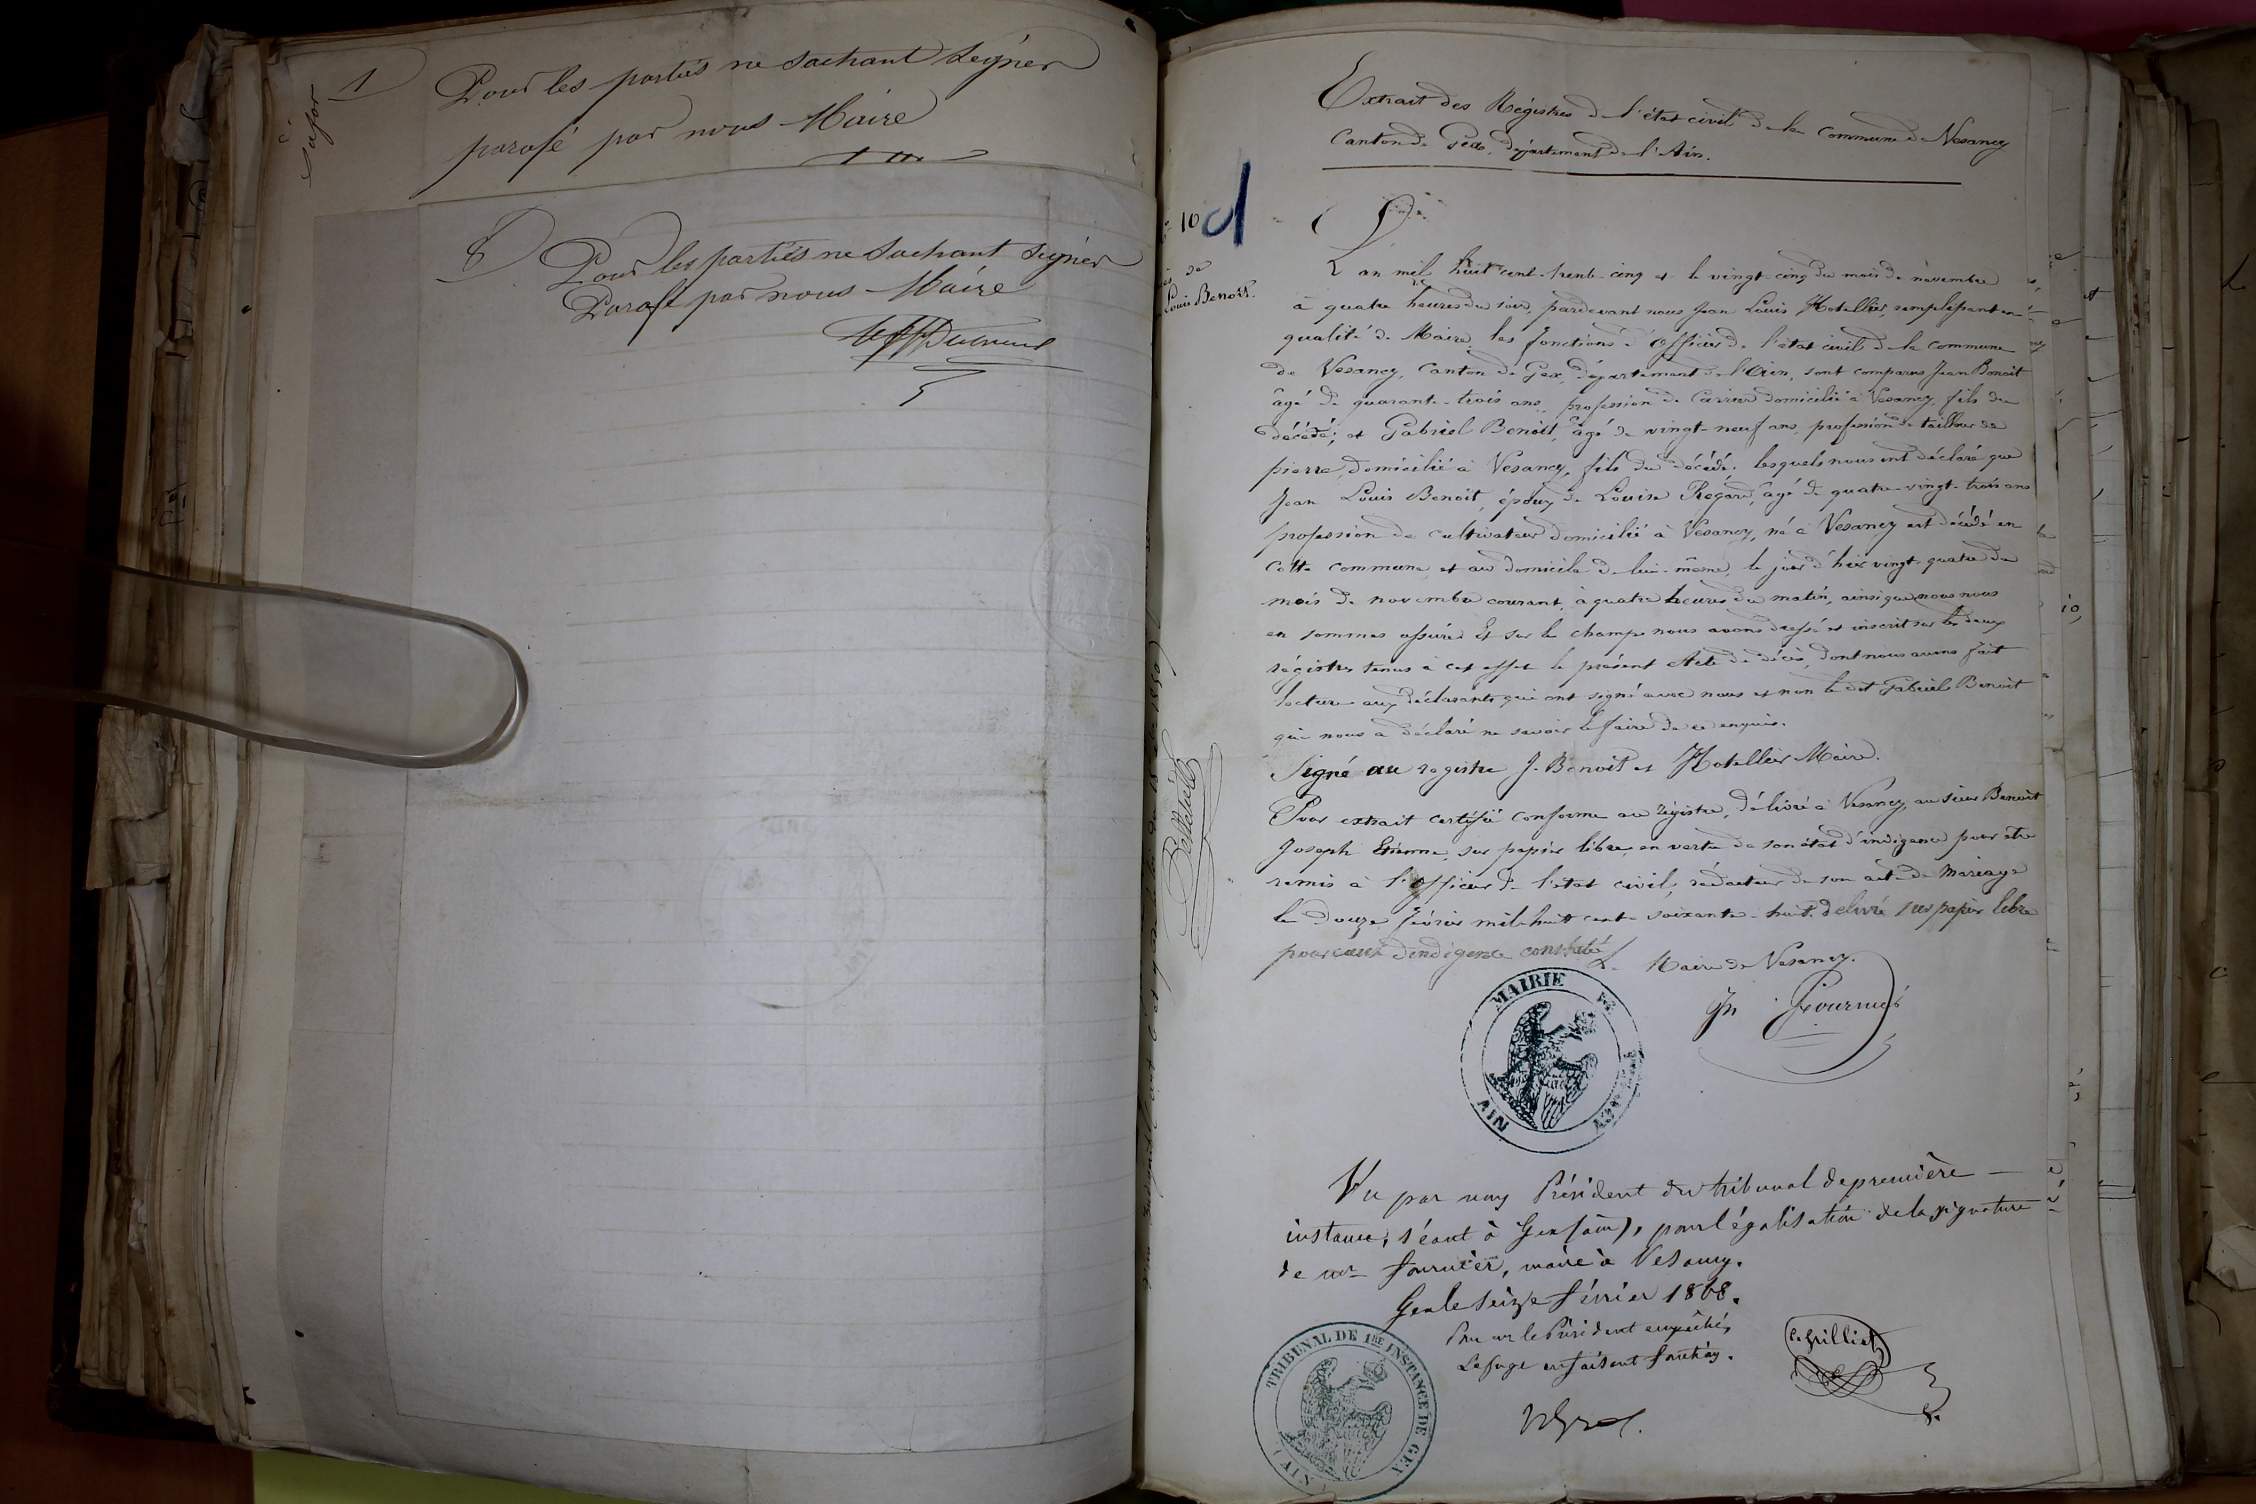 1
Pour les parties ne sachant seigner
parafé par nous Maire
8
Pour les parties ne sachant seigner
Parafé par nous Maire
Extrait des Régistres de l'état civil de la commune de Vesancy
Canton de Gex, département de l'Ain.
10
de
Louis Benoit.
L'an mil huit cent trente-cinq et le vingt-cinq du mois de novembre
à quatre heures du soir, pardevant nous Jean Louis Hotellier, remplissant en
qualité de Maire, les fonctions d'officier de l'état civil de la commune
de Vesancy, Canton de Gex, département de l'Ain, sont comparus Jean Benoit
âgé de quarante-trois ans, profession de Carrier domicilié à Vesancy, fils du
décédé; et Gabriel Benoit, âgé de vingt-neuf ans, profession de tailleur de
pierre, domicilié à Vesancy, fils du décédé. lesquels nous ont déclaré que
Jean Louis Benoit, époux de Louise Régard, âgé de quatre-vingt-trois ans
profession de cultivateur domicilié à Vesancy, né à Vesancy est décédé en
cette commune et au domicile de lui-même, le jour d'hier vingt-quatre du
mois de novembre courant, à quatre heures du matin, ainsi que nous nous
en sommes assuré. Et sur le champ nous avons dressé et inscrit sur les deux
régistres tenus à cet effet le présent Acte de décès, dont nous avons fait
lecture aux déclarants qui ont signé avec nous et non le dit Gabriel Benoit
qui nous a déclaré ne savoir le faire de ce enquis.
Signé au registre J. Benoit et Hotellier Maire.
Pour extrait certifié conforme au régistre, délivré à Vesancy, au sieur Benoit
Joseph Etienne, sur papier libre, en vertu de son état d'indigence pour être
remis à l'officier de l'état civil, rédacteur de son acte de Mariage
le douze février mil-huit cent-soixante-huit. délivré sur papier libre
pour cause d'indigence constaté
Le Maire de Vesancy.
Fournier
MAIRIE DE VESANCY
AIN
Vu par nous Président du tribunal de première
instance, séant à Gex (ain), pour légalisation de la signature
de mr fournier, maire à Vesancy.
Gex le seize février 1868.
Pour mr le Président empêché,
Le juge en faisant fonction.
TRIBUNAL DE 1RE INSTANCE DE GEX
(AIN)